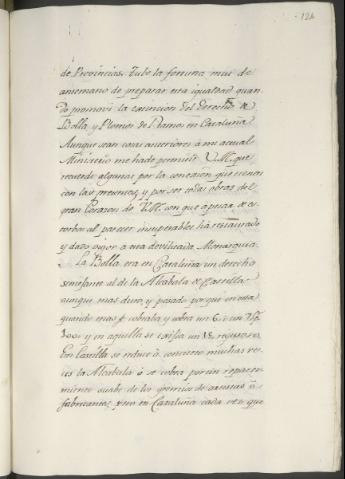 124
de Provincias. Tube la fortuna mui de
antemano de preparar esta igualdad quan
do promovi la extincion del derecho de
Bolla, y Plomos de Ramos en Cataluña
Aunque sean cosas anteriores à mi actual
Ministerio me hade permitir V.M. que
recuerde algunas por la conexion que tienen
con las presentes, y por ser todas obras del
gran Corazon de V.M. con que apesar de es
torbos al parecer insuperables ha restaurado
y dado vigor a esta devilitada Monarquia.
La Bolla era en Cataluña un derecho
semejante al de la Alcabala de Castilla
aunque mas duro, y pesado porque en esta
quando mas se cobraba, y cobra un 6. ú un 7 p
100, y en aquella se exigia un 15 riguroso.
En Castilla se reduce à concierto muchas ve
ces la Alcabala ò se cobra por un reparti
miento suabe de los gremios de artistas ò
fabricantes, pero en Cataluña cada vez que